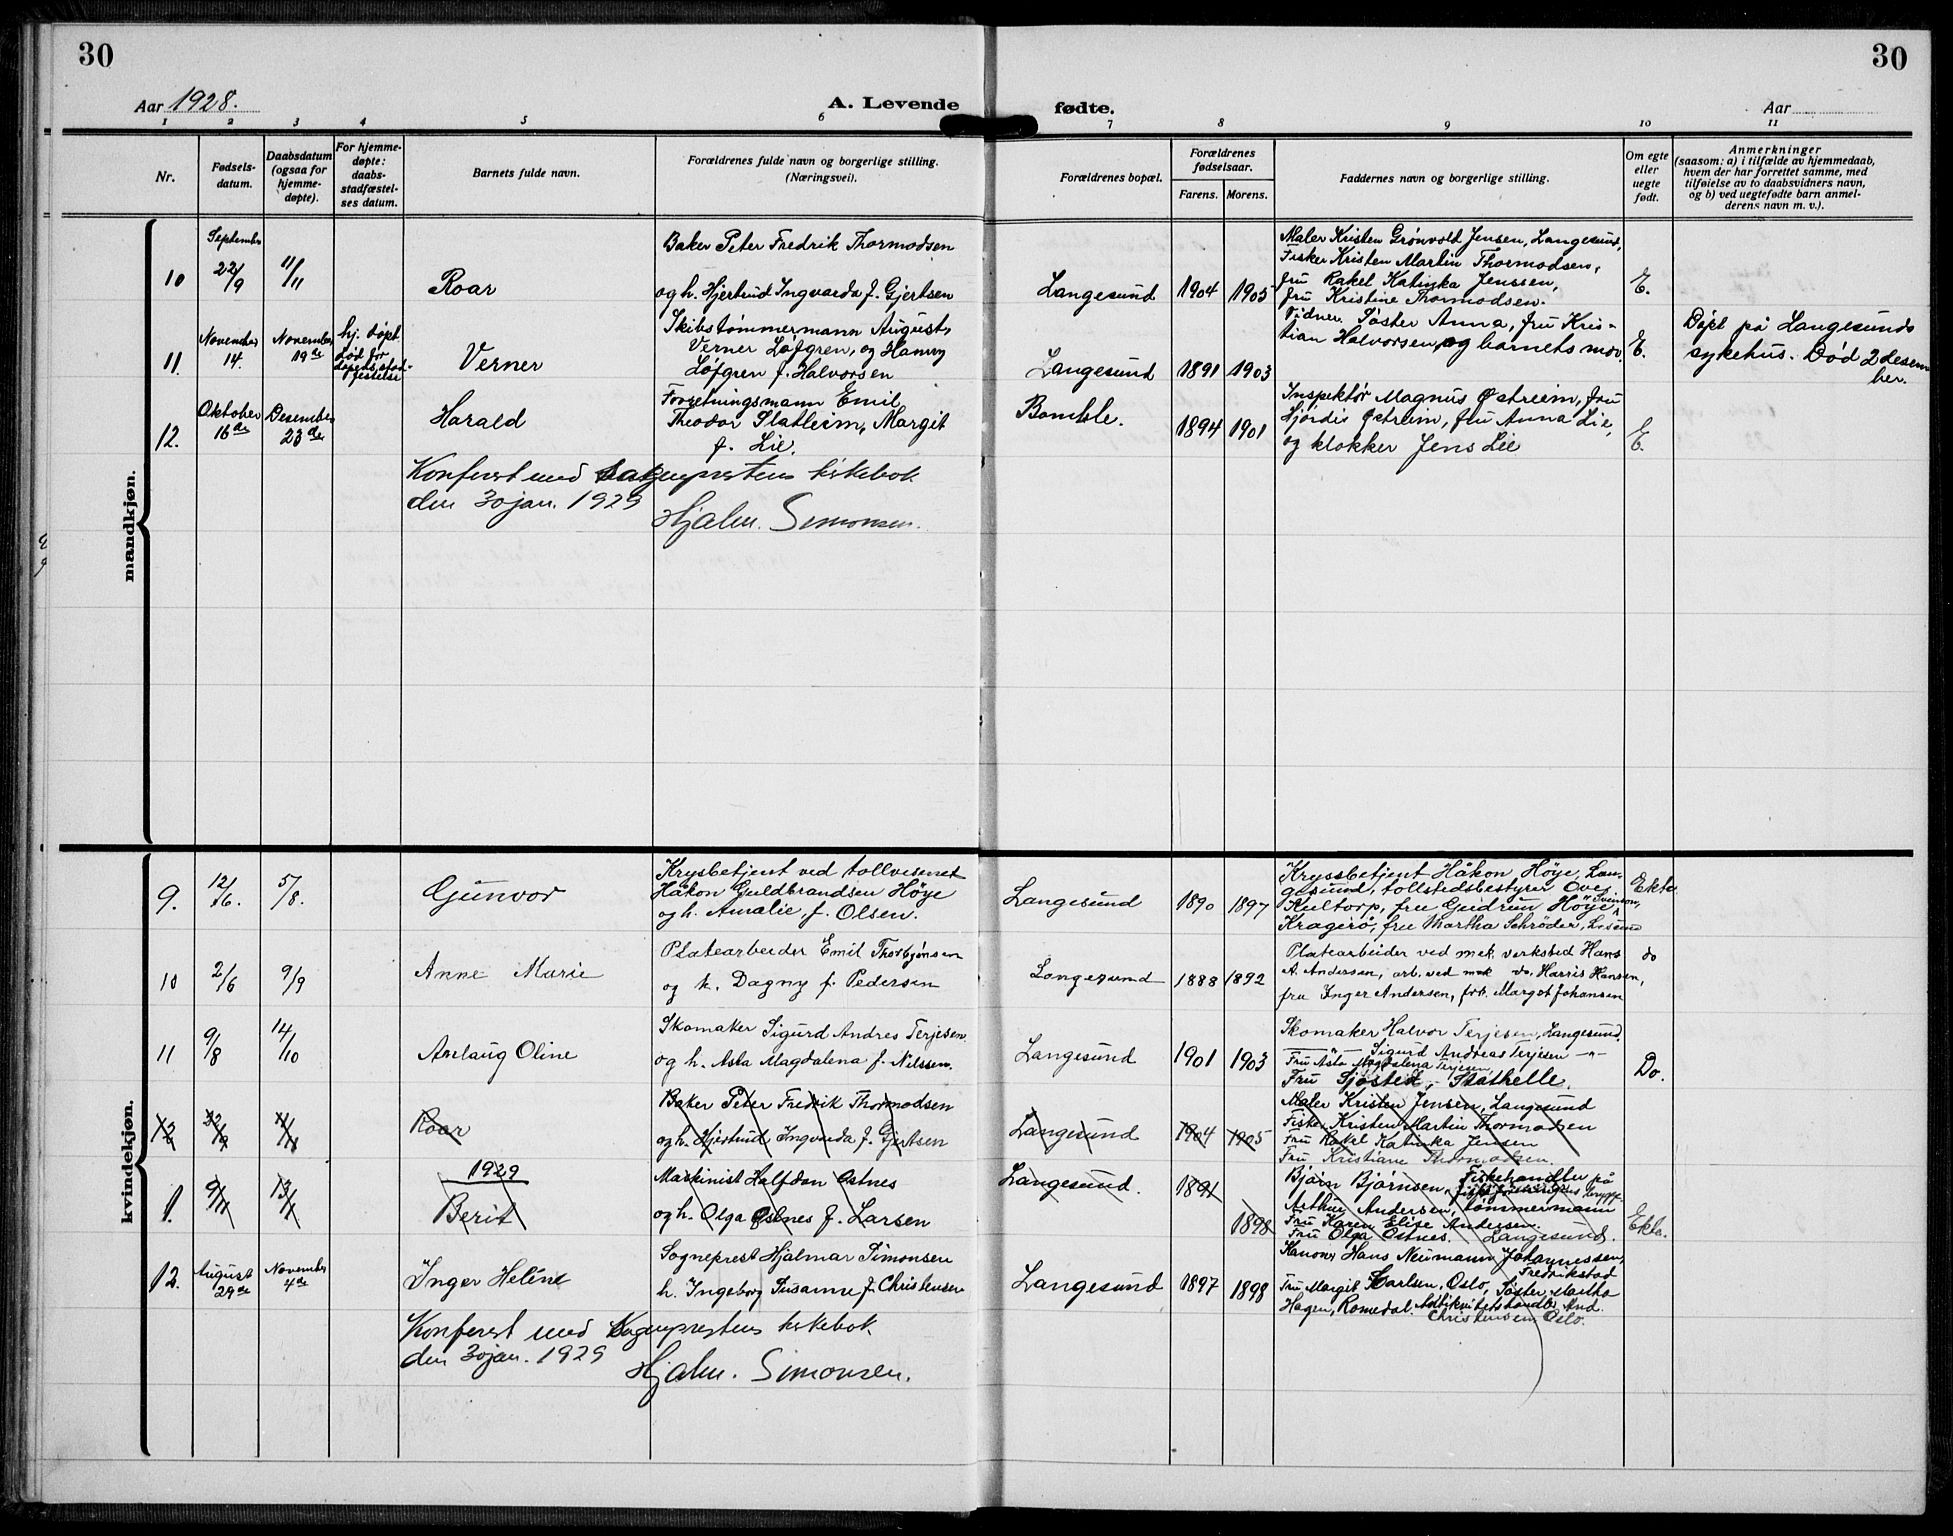 30
30
Aar 1928.
A. Levende fødte.
Aar
1 2 3 4 5 6 7 8 9 10 11
Nr.
Fødsels-
datum.
Daabsdatum
(ogsaa for
hjemme-
døpte).
For hjemme-
døpte:
daabs-
stadfæstel-
ses datum.
Barnets fulde navn.
Forældrenes fulde navn og borgerlige stilling.
(Næringsvei).
Forældrenes bopæl.
Forældrenes
fødselsaar.
Farens. Morens.
Faddernes navn og borgerlige stilling.
Om egte
eller
uegte
født.
Anmerkninger
(saasom: a) i tilfælde av hjemmedaab,
hvem der har forrettet samme, med
tilføielse av to daabsvidners navn,
og b) ved uegtefødte barn anmel-
derens navn m. v.).
mandkjøn.
10
September
22/9
11/11
Roar
Baker Peter Fredrik Thormodsen
og h. Hjertrud Ingvarda f. Gjertsen
Langesund
1904 1905
Maler Kristen Grønvold Jensen, Langesund,
Fisker Kristen Martin Thormodsen,
fru Rakel Katinka Jenssen,
fru Kristine Thormodsen.
E.
11.
November
14.
November
19de
hj. døpt
Død før
dåpens stad-
festelse
Verner
Skibstømmermann August
Verner Løfgren, og Hanny
Løfgren f. Halvorsen
Langesund
1891 1903
Vidner Søster Anna, fru Kris-
tian Halvorsen, og barnets mor.
E.
Døpt på Langesunds
sykehus. Død 2 desem
ber.
12.
Oktober
16de
Desember
23de
Harald
Forretningsmann Emil
Theodor Slatleim, Margit
f. Lie.
Bamble.
1894 1901
Inspektør Magnus Østreim, fru
Hjørdis Østreim, fru Anna Lie,
og klokker Jens Lie
E.
Konferert med Sogneprestens kirkebok
den 30 jan. 1929
Hjalm. Simonsen.
kvindekjøn.
9.
12/6.
5/8.
Gunvor
Krysbetjent ved tollvesenet
Håkon Guldbrandsen Höye
og h. Amalie f. Olsen.
Langesund
1890 1897
Kryssbetjent Håkon Höye, Lan-
gesund, tollstedsbestyrer Ove
Kultorp, fru Gudrun Höye Svenson,
Kragerö, fru Martha Schröder, L.sund
Ekte
10
2/6
9/9
Anne Marie
Platearbeider Emil Thorbjønsen
og h. Dagny f. Pedersen
Langesund
1888 1892
Platearbeider ved mek. verksted Hans
A. Andersen, arb. ved mek do. Harris Hansen,
fru Inger Andersen, frk. Margot Johansen
do
11
9/8
14/10
Anlaug Oline
Skomaker Sigurd Andres Terjesen
og h. Asta Magdalena f. Nilssen.
Langesund
1901 1903
Skomaker Halvor Terjesen, Langesund.
Sigurd Andreas Terjesen -"-
Fru Asta Magdalena Terjesen
Fru Sjøsted, Stathelle.
Do.
12
22/9
11/11
Roar
Baker Peter Fredrik Thormodsen
og h. Hjertrud Ingvarda f. Gjertsen
Langesund
1904 1905
Maler Kristen Jensen, Langesund
Fisker Kristen Martin Thormodsen
Fru Rakel Katinka Jensen
Fru Kristiane Thormodsen.
1929
1.
9/11
13/1
Berit
Maskinist Halfdan Ostnes
og h. Olga Ostnes f. Larsen
Langesund.
1891
1898
Bjørn Bjørnsen, Fiskehandler på
Arthur Andersen, tømmermann
Fru Karen Elise Andersen.
Fru Olga Ostnes. Langesund.
Ekte.
12.
August
29de
November
4de
Inger Heléne
Sogneprest Hjalmar Simonsen
h. Ingeborg Susanne f. Christensen
Langesund
1897 1898
Kanoner Hans Neumann Johannessen,
Fredrikstad
Fru Margit Carlsen, Oslo, Søster Martha
Hagen, Romedal. Antikvitetshandler And.
Christensen Oslo.
Konferert med Sogneprestens kirkebok
den 30 jan. 1929
Hjalm. Simonsen.